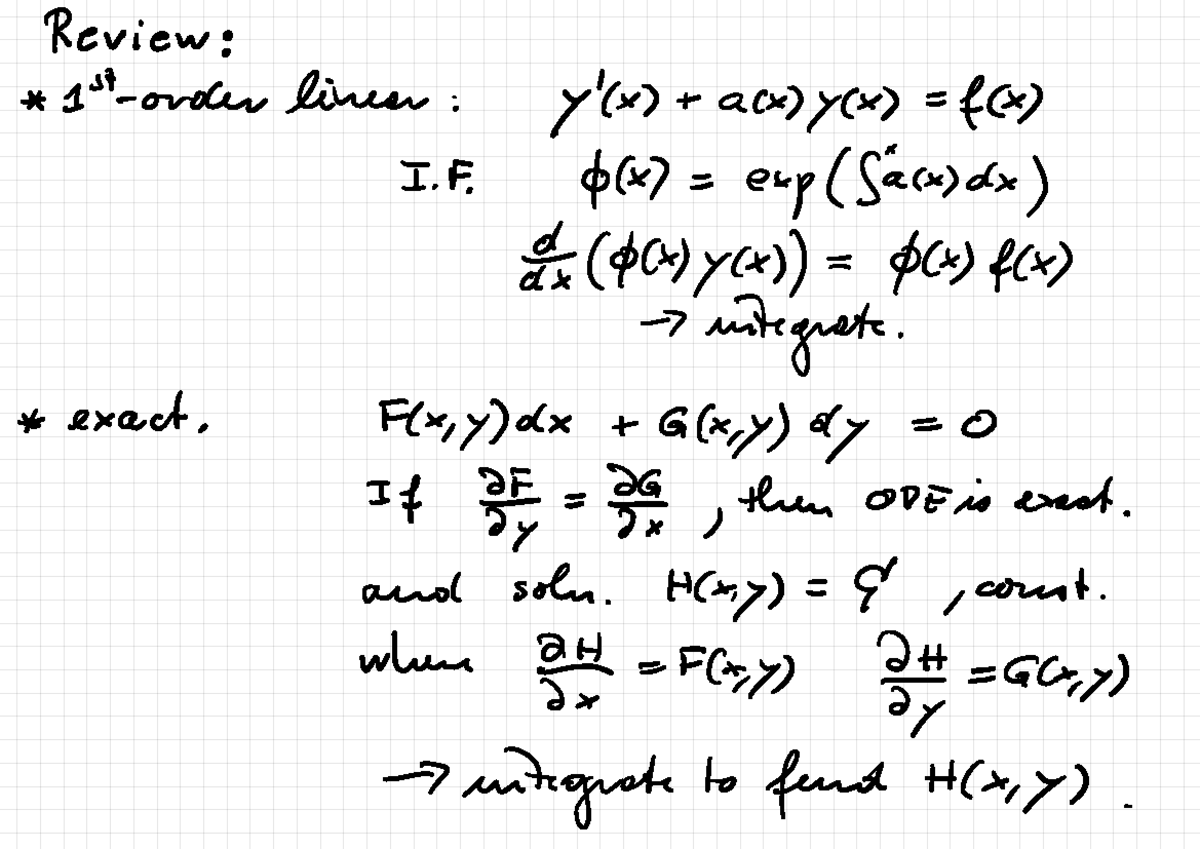 Review:
* 1st-order linear: y'(x) + a(x) y(x) = f(x)
I.F. ϕ(x) = exp(∫^x a(x) dx)
d/dx (ϕ(x) y(x)) = ϕ(x) f(x)
→ integrate.
* exact. F(x,y) dx + G(x,y) dy = 0
If ∂F/∂y = ∂G/∂x, then ODE is exact.
and soln. H(x,y) = C, const.
where ∂H/∂x = F(x,y) ∂H/∂y = G(x,y)
→ integrate to find H(x,y).